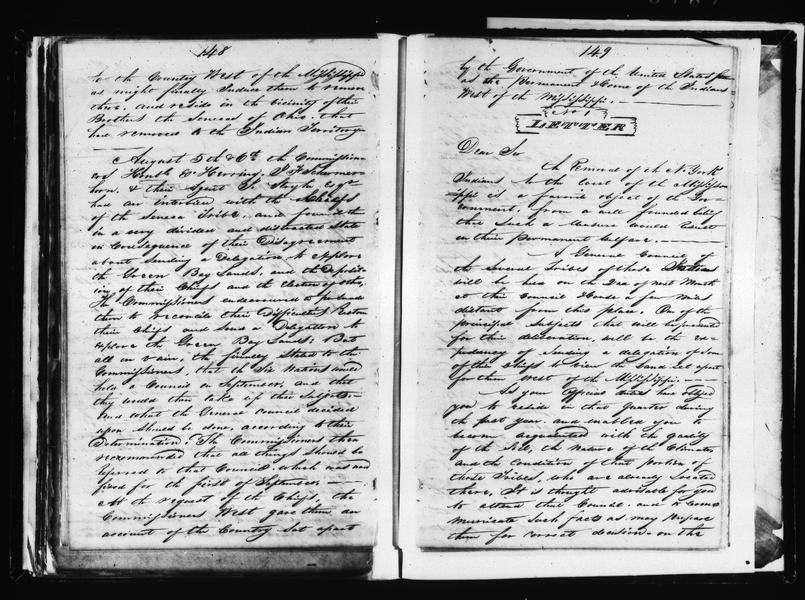 148
to the Country West of the Mississippi
as might finally Induce them to remove
there, and reside in the vicinity of their
Brothers the Senecas of Ohio that
had removed to the Indian Territory
August 5th & 6th the Commission-
ers Honble E Herring, J F Schermer-
horn, & their Agent Js Stryker Esqr
had an Interview with the Chiefs
of the Seneca Tribe, and found them
in a very divided and distracted State
in Consequence of their Disagreement
about Sending a Delegation to explore
the Green Bay Lands, and the Deposit-
ion of their Chiefs and the Election of others,
The Commissioners endeavoured to persuade
them to reconcile their Difficulties Restore
their Chiefs and Send a Delegation to
explore the Green Bay Lands; But
all in vain, the finally Stated to the
Commissioners, that the Six Nations would
hold a Council in September, and that
they would then take up the Subject
and what the General Council decided
upon Should be done, according to their
Determination, The Commissioners then
recommended that all things Should be
referred to that Council, which was now
fixed for the first of September
At the request of the Chiefs, the
Commissioners West gave them an
account of the Country Set apart
149
by the Government of the United States for
as the Permanent Home of the Indians
West of the Mississippi.
No 1
LETTER
Dear Sir
The Removal of the N. York
Indians to the West of the Mississ-
ippi is a favorite object of the Gov-
ernment, from a well founded belief
that Such a Measure would Result
in their Permanent Welfare.
A General Council of
the Several Tribes of these Indians
will be held on the 2d of next Month
at their Council House a few miles
distant from this place. One of the
principal Subjects that will be presented
for their deliberation, will be the ex-
pediency of Sending a delegation of Some
of their Chiefs to View the Land set apart
for them West of the Mississippi.
As your Official duties have obliged
you to reside in that Quarter during
the past year, and enabled you to
become acquainted with the Quality
of the Soil, the Nature of the Climate,
and the Condition of that portion of
those Tribes, who are already Located
there, It is thought advisable for you
to attend that Council, and to Com-
municate Such facts as may prepare
them for correct decision on the